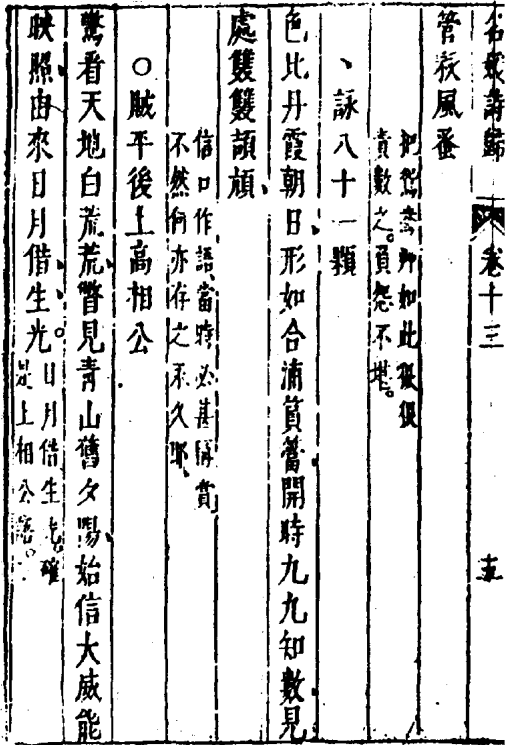 名媛詩歸 卷十三 五
管秋風蚤
把鴛鴦却如此狠狠
責數之。怨不堪。
詠八十一顆
色比丹霞朝日形如合浦篔簹開時九九知數見
處雙雙頡頏
信口作語、當時必甚稱賞、
不然何亦存之永久耶、
○賊平後上高相公
驚看天地白荒荒瞥見青山舊夕陽始信大威能
映照由來日月借生光。
日月借生光、確
是上相公語。